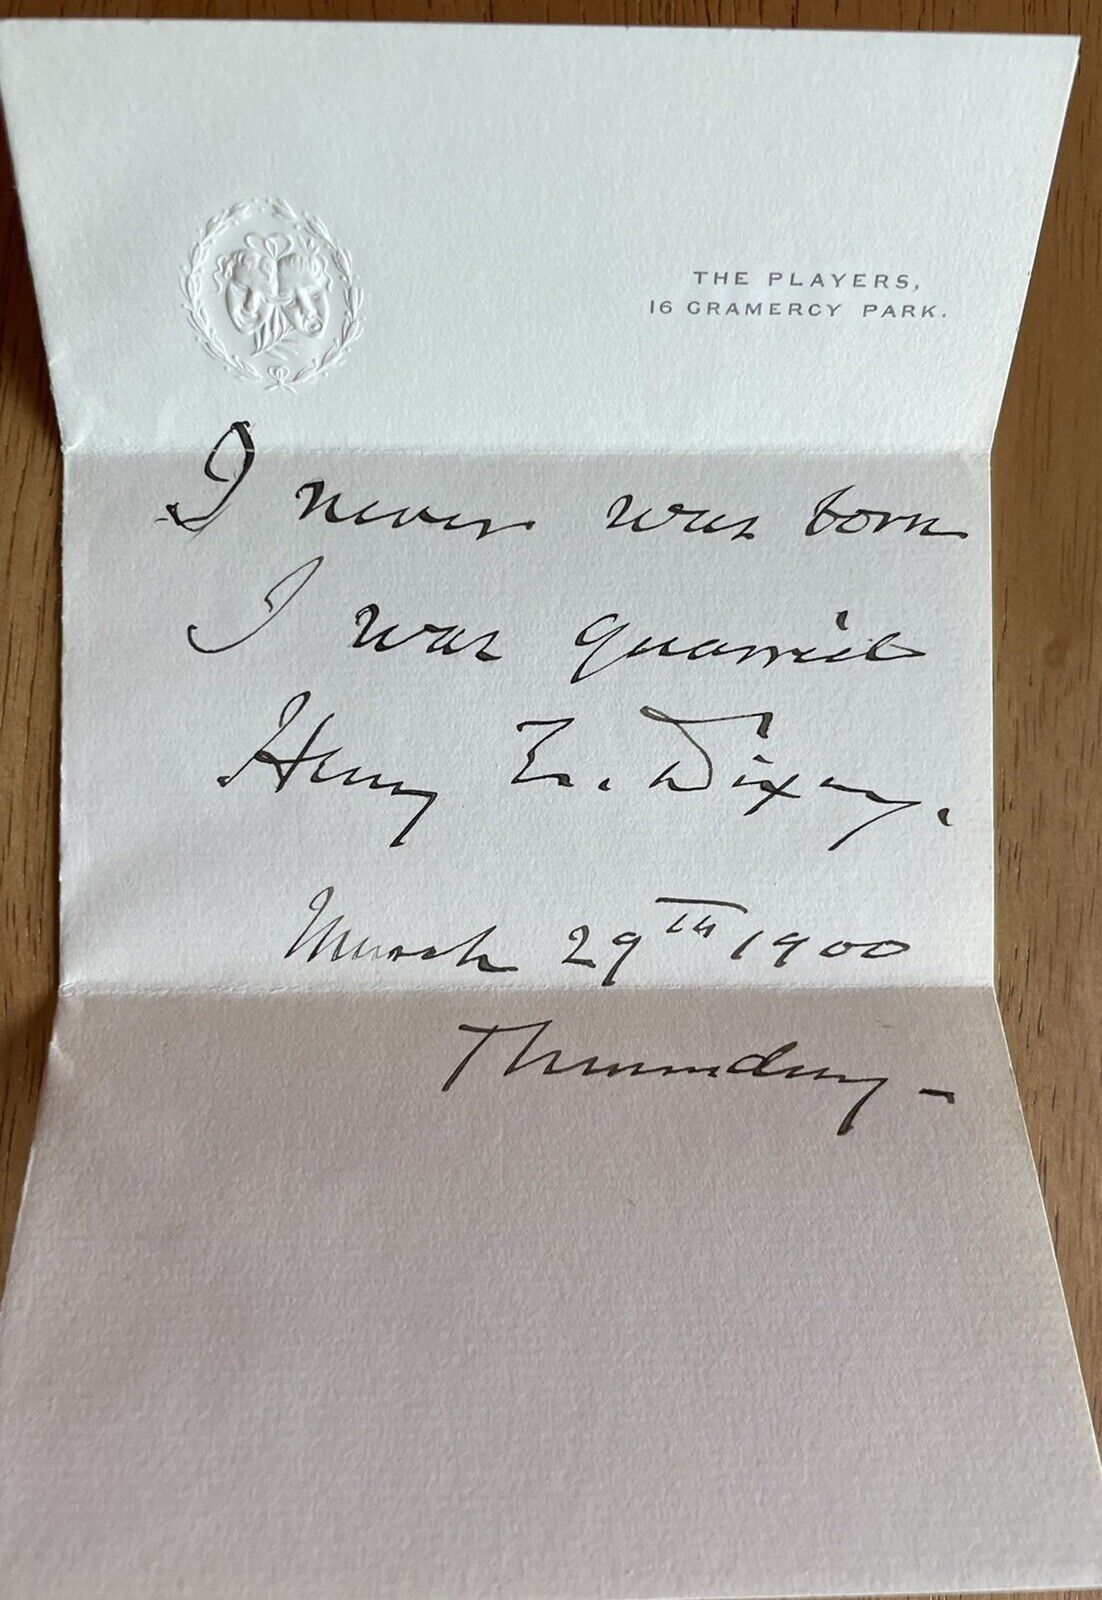 THE PLAYERS,
16 GRAMERCY PARK.
I never was born
I was quarried
Henry E. Dixey.
March 29TH 1900
Thursday —